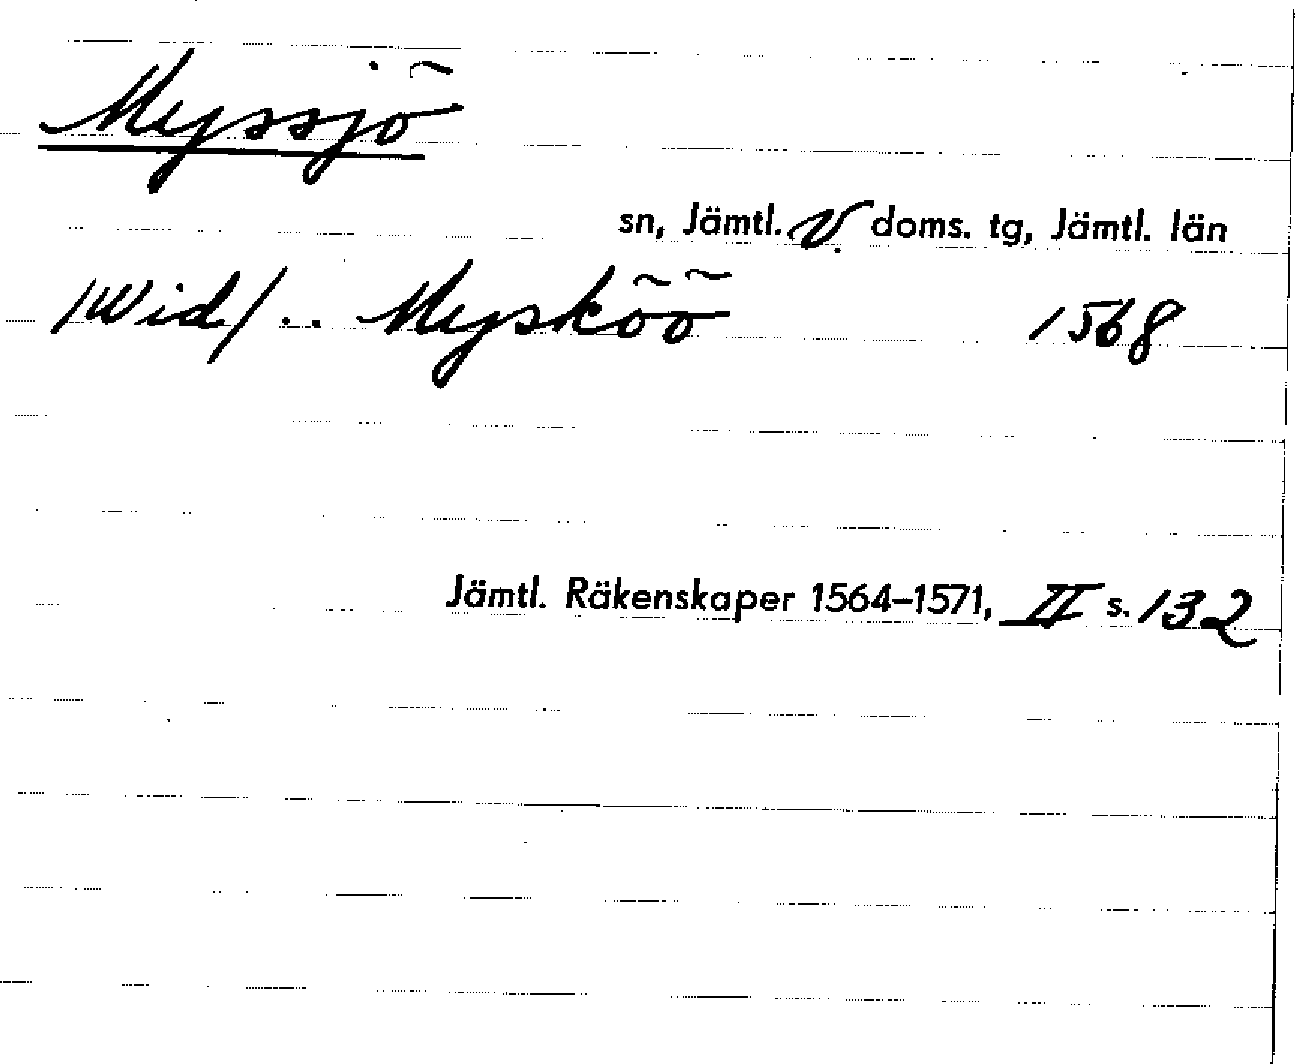 Myssjö
sn, Jämtl. v. doms. tg, Jämtl. län
/Wid/ .. Mysköö 1568
Jämtl. Räkenskaper 1564–1571, II s. 132